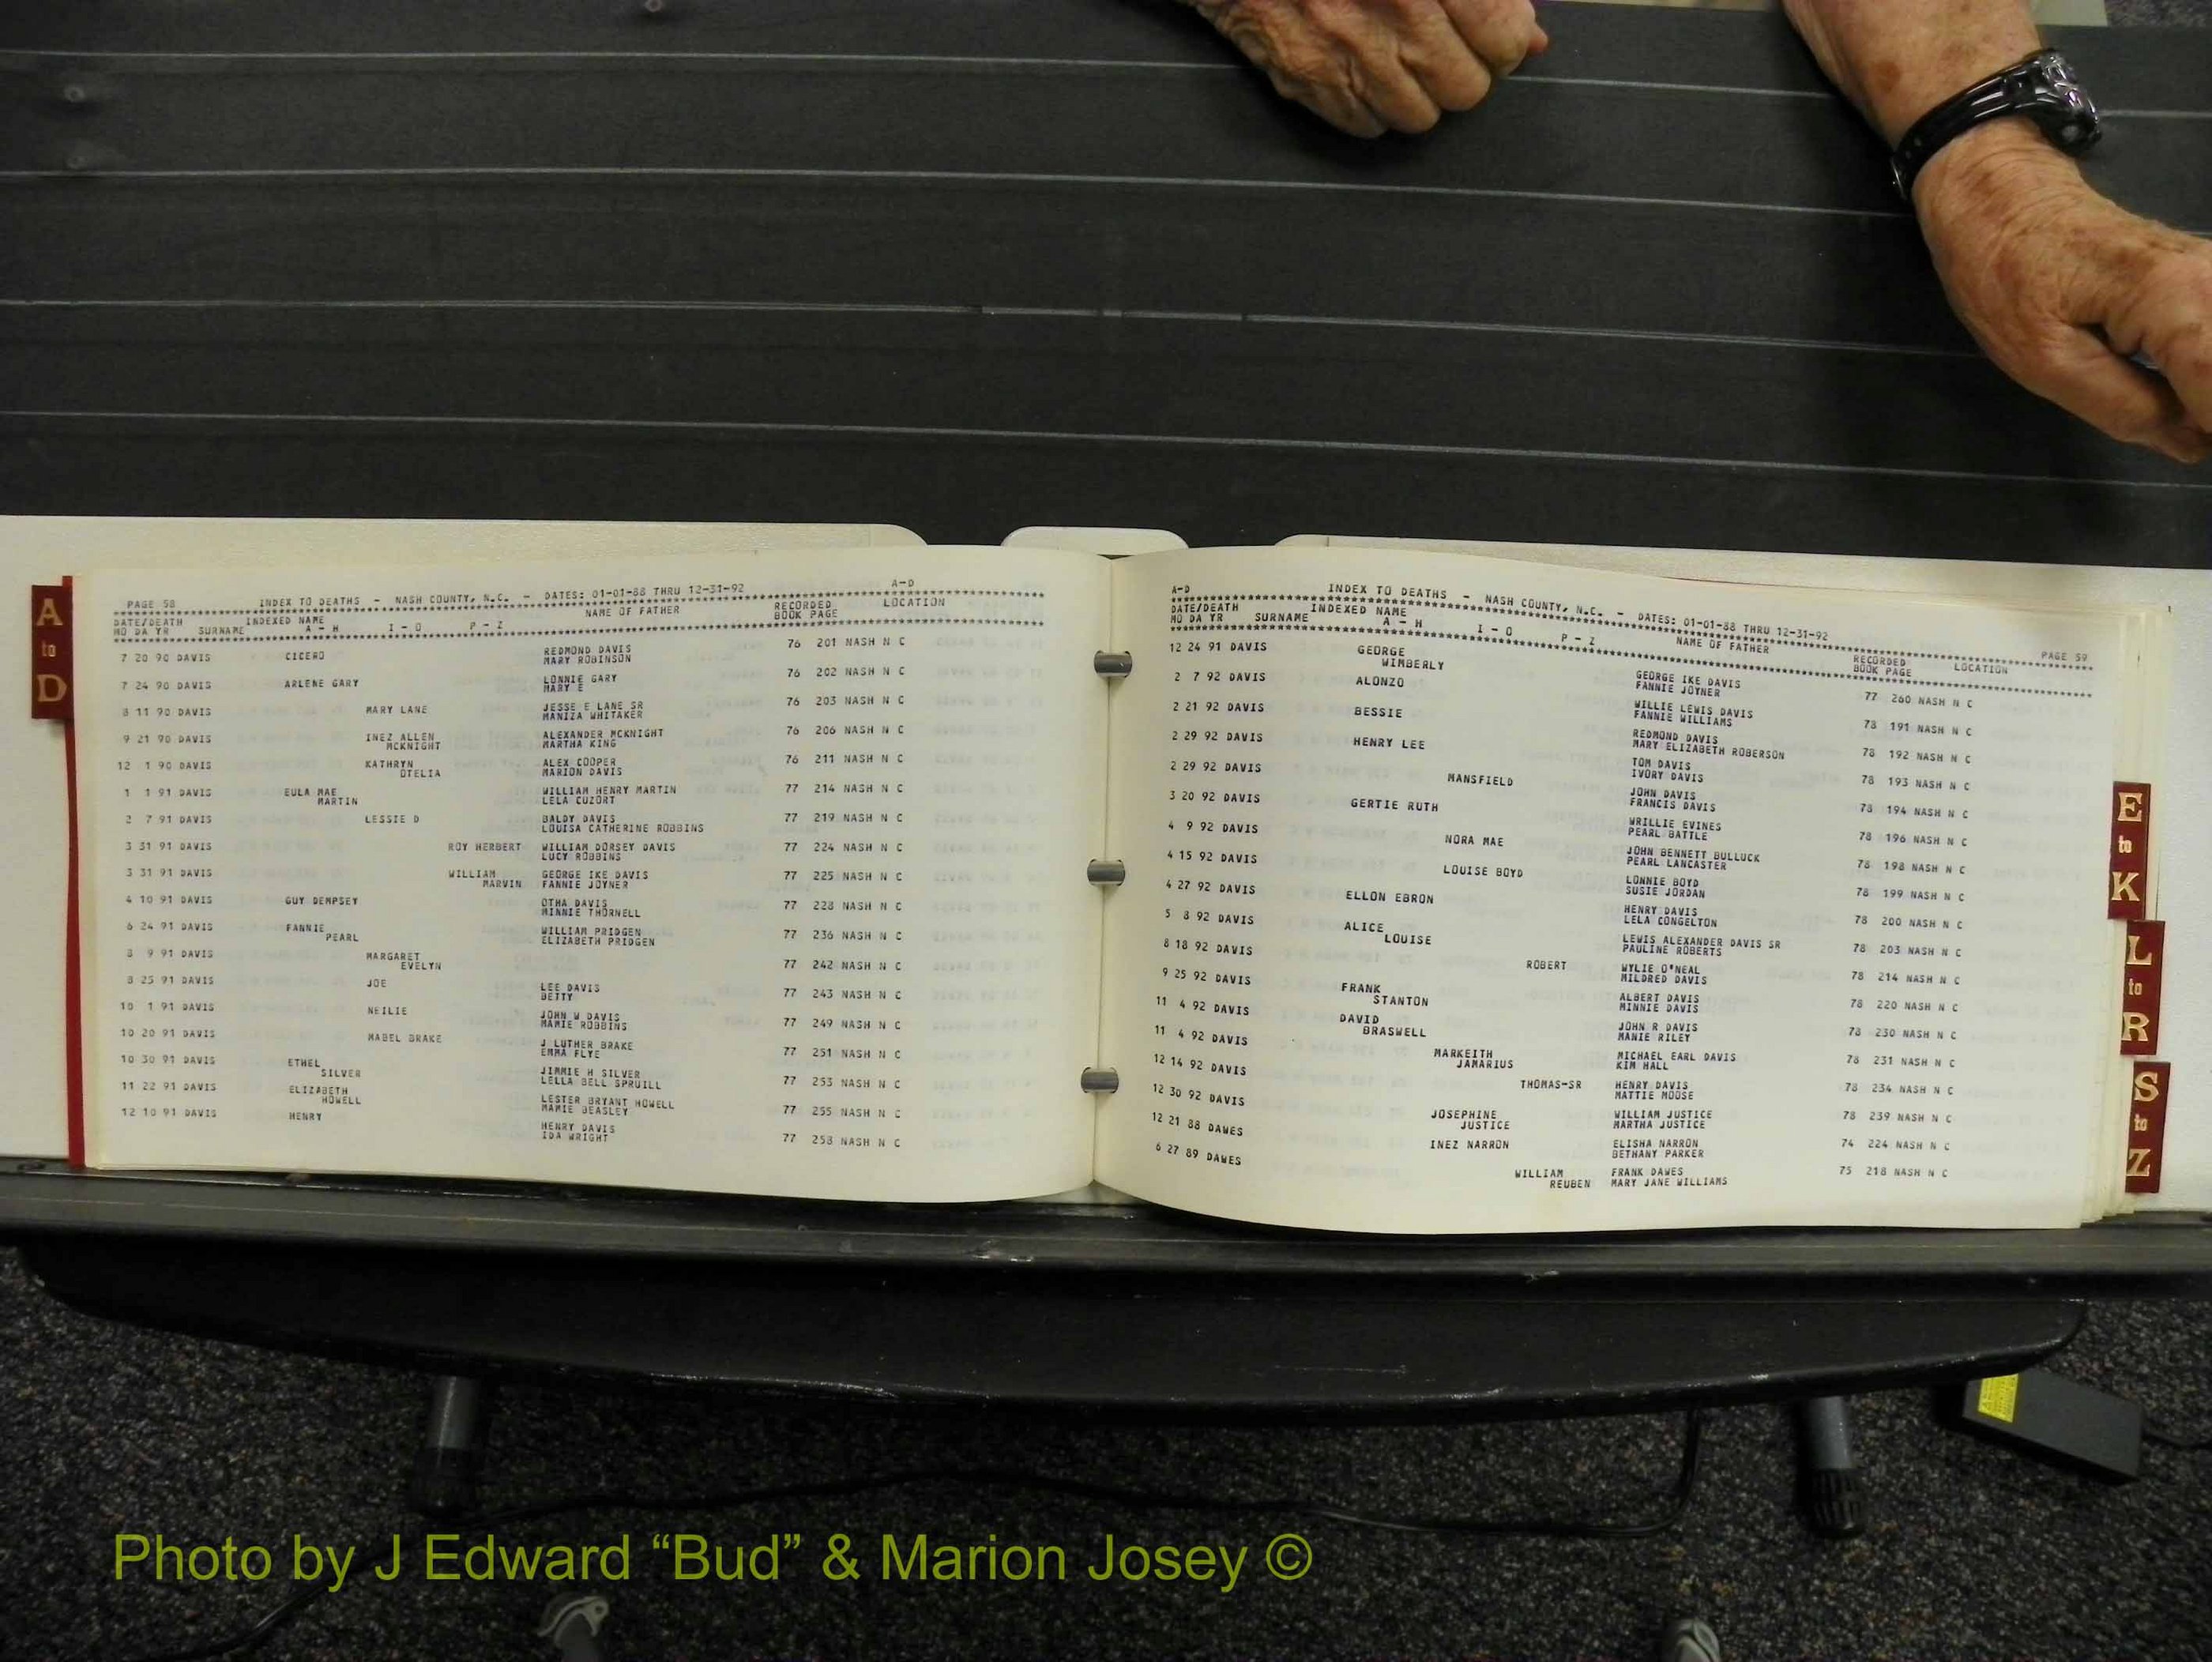 A to D
PAGE 58 INDEX TO DEATHS - NASH COUNTY, N.C. - DATES: 01-01-88 THRU 12-31-92 A-D
DATE/DEATH INDEXED NAME NAME OF FATHER RECORDED LOCATION
MO DA YR SURNAME A - H I - O P - Z BOOK PAGE
7 20 90 DAVIS CICERO REDMOND DAVIS 76 201 NASH N C
MARY ROBINSON
7 24 90 DAVIS ARLENE GARY LONNIE GARY 76 202 NASH N C
MARY E
8 11 90 DAVIS MARY LANE JESSE E LANE SR 76 203 NASH N C
MANIZA WHITAKER
9 21 90 DAVIS INEZ ALLEN ALEXANDER MCKNIGHT 76 206 NASH N C
MCKNIGHT MARTHA KING
12 1 90 DAVIS KATHRYN ALEX COOPER 76 211 NASH N C
OTELIA MARION DAVIS
1 1 91 DAVIS EULA MAE WILLIAM HENRY MARTIN 77 214 NASH N C
MARTIN LELA CUZORT
2 7 91 DAVIS LESSIE D BALDY DAVIS 77 219 NASH N C
LOUISA CATHERINE ROBBINS
3 31 91 DAVIS ROY HERBERT WILLIAM DORSEY DAVIS 77 224 NASH N C
LUCY ROBBINS
3 31 91 DAVIS WILLIAM GEORGE IKE DAVIS 77 225 NASH N C
MARVIN FANNIE JOYNER
4 10 91 DAVIS GUY DEMPSEY OTHA DAVIS 77 228 NASH N C
MINNIE THORNELL
6 24 91 DAVIS FANNIE WILLIAM PRIDGEN 77 236 NASH N C
PEARL ELIZABETH PRIDGEN
8 9 91 DAVIS MARGARET 77 242 NASH N C
EVELYN
8 25 91 DAVIS JOE LEE DAVIS 77 243 NASH N C
BETTY
10 1 91 DAVIS NEILIE JOHN W DAVIS 77 249 NASH N C
MAMIE ROBBINS
10 20 91 DAVIS MABEL BRAKE J LUTHER BRAKE 77 251 NASH N C
EMMA FLYE
10 30 91 DAVIS ETHEL JIMMIE H SILVER 77 253 NASH N C
SILVER LELLA BELL SPRUILL
11 22 91 DAVIS ELIZABETH LESTER BRYANT HOWELL 77 255 NASH N C
HOWELL MAMIE BEASLEY
12 10 91 DAVIS HENRY HENRY DAVIS 77 258 NASH N C
IDA WRIGHT
A-D INDEX TO DEATHS - NASH COUNTY, N.C. - DATES: 01-01-88 THRU 12-31-92 PAGE 59
DATE/DEATH INDEXED NAME NAME OF FATHER RECORDED LOCATION
MO DA YR SURNAME A - H I - O P - Z BOOK PAGE
12 24 91 DAVIS GEORGE GEORGE IKE DAVIS 77 260 NASH N C
WIMBERLY FANNIE JOYNER
2 7 92 DAVIS ALONZO WILLIE LEWIS DAVIS 78 191 NASH N C
FANNIE WILLIAMS
2 21 92 DAVIS BESSIE REDMOND DAVIS 78 192 NASH N C
MARY ELIZABETH ROBERSON
2 29 92 DAVIS HENRY LEE TOM DAVIS 78 193 NASH N C
IVORY DAVIS
2 29 92 DAVIS MANSFIELD JOHN DAVIS 78 194 NASH N C
FRANCIS DAVIS
3 20 92 DAVIS GERTIE RUTH WRILLIE EVINES 78 196 NASH N C
PEARL BATTLE
4 9 92 DAVIS NORA MAE JOHN BENNETT BULLUCK 78 198 NASH N C
PEARL LANCASTER
4 15 92 DAVIS LOUISE BOYD LONNIE BOYD 78 199 NASH N C
SUSIE JORDAN
4 27 92 DAVIS ELLON EBRON HENRY DAVIS 78 200 NASH N C
LELA CONGELTON
5 8 92 DAVIS ALICE LEWIS ALEXANDER DAVIS SR 78 203 NASH N C
LOUISE PAULINE ROBERTS
8 18 92 DAVIS ROBERT WYLIE O'NEAL 78 214 NASH N C
MILDRED DAVIS
9 25 92 DAVIS FRANK ALBERT DAVIS 78 220 NASH N C
STANTON MINNIE DAVIS
11 4 92 DAVIS DAVID JOHN R DAVIS 78 230 NASH N C
BRASWELL MANIE RILEY
11 4 92 DAVIS MARKEITH MICHAEL EARL DAVIS 78 231 NASH N C
JAMARIUS KIM HALL
12 14 92 DAVIS THOMAS-SR HENRY DAVIS 78 234 NASH N C
MATTIE MOOSE
12 30 92 DAVIS JOSEPHINE WILLIAM JUSTICE 78 239 NASH N C
JUSTICE MARTHA JUSTICE
12 21 88 DAWES INEZ NARRON ELISHA NARRON 74 224 NASH N C
BETHANY PARKER
6 27 89 DAWES WILLIAM FRANK DAWES 75 218 NASH N C
REUBEN MARY JANE WILLIAMS
E to K
L to R
S to Z
Photo by J Edward “Bud” & Marion Josey ©